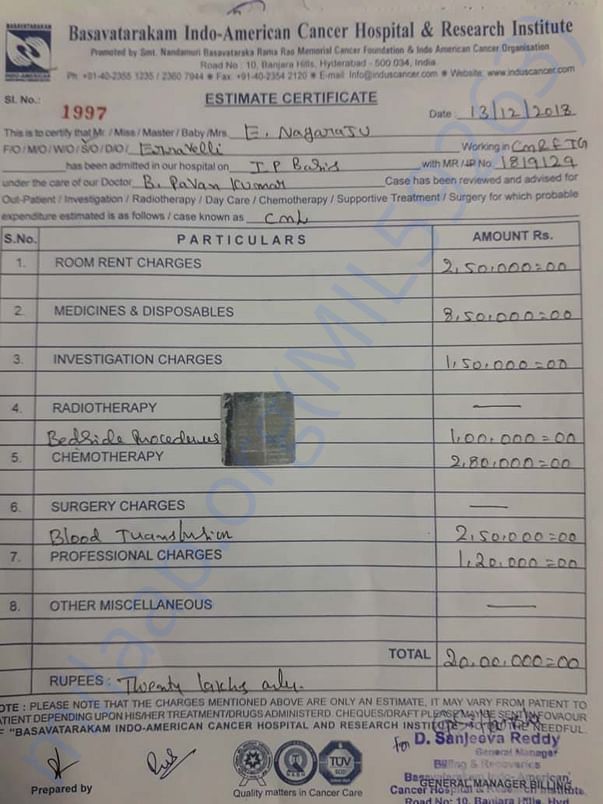 BASAVATARAKAM
INDO-AMERICAN
Basavatarakam Indo-American Cancer Hospital & Research Institute
Promoted by Smt. Nandamuri Basavataraka Rama Rao Memorial Cancer Foundation & Indo American Cancer Organisation
Road No : 10, Banjara Hills, Hyderabad - 500 034, India
Ph : +91-40-2355 1235 / 2360 7944 Fax : +91-40-2354 2120 E-mail : Info@induscancer.com Website: www.induscancer.com
Sl. No.: 1997
ESTIMATE CERTIFICATE
Date : 13/12/2018
This is to certify that Mr. / Miss / Master / Baby /Mrs. E. Nagaraju
F/O / M/O / W/O / S/O / D/O / Erravelli Working in CMRF TG
has been admitted in our hospital on I P Basis with MR / IP No. 1819129
under the care of our Doctor B. Pavan Kumar Case has been reviewed and advised for
Out-Patient / Investigation / Radiotherapy / Day Care / Chemotherapy / Supportive Treatment / Surgery for which probable
expenditure estimated is as follows / case known as CML
S.No. PARTICULARS AMOUNT Rs.
1. ROOM RENT CHARGES 2,50,000=00
2. MEDICINES & DISPOSABLES 8,50,000=00
3. INVESTIGATION CHARGES 1,50,000=00
4. RADIOTHERAPY —
Bedside Procedures 1,00,000=00
5. CHEMOTHERAPY 2,80,000=00
6. SURGERY CHARGES —
Blood Transfusion 2,50,000=00
7. PROFESSIONAL CHARGES 1,20,000=00
8. OTHER MISCELLANEOUS —
TOTAL 20,00,000=00
RUPEES : Twenty lakhs only.
OTE : PLEASE NOTE THAT THE CHARGES MENTIONED ABOVE ARE ONLY AN ESTIMATE, IT MAY VARY FROM PATIENT TO
ATIENT DEPENDING UPON HIS/HER TREATMENT/DRUGS ADMINISTERD. CHEQUES/DRAFT PLEASE MAY BE SENT INFOVAOUR
"BASAVATARAKAM INDO-AMERICAN CANCER HOSPITAL AND RESEARCH INSTITUTE" THE NEEDFUL.
For D. Sanjeeva Reddy
General Manager
Billing & Recoveries
GENERAL MANAGER BILLING
Cancer Hospital & Research Institute
Road No: 10, Banjara Hills, Hyd
Prepared by
TUV
Quality matters in Cancer Care
milaap.org(MIL532637)